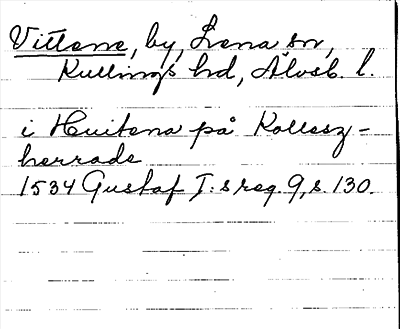 Vittene, by, Lena sn,
Kullings hd, Älvsb. l.
i Huitena på Kollesz-
herrade
1534 Gustaf I:s reg. 9, s. 130.